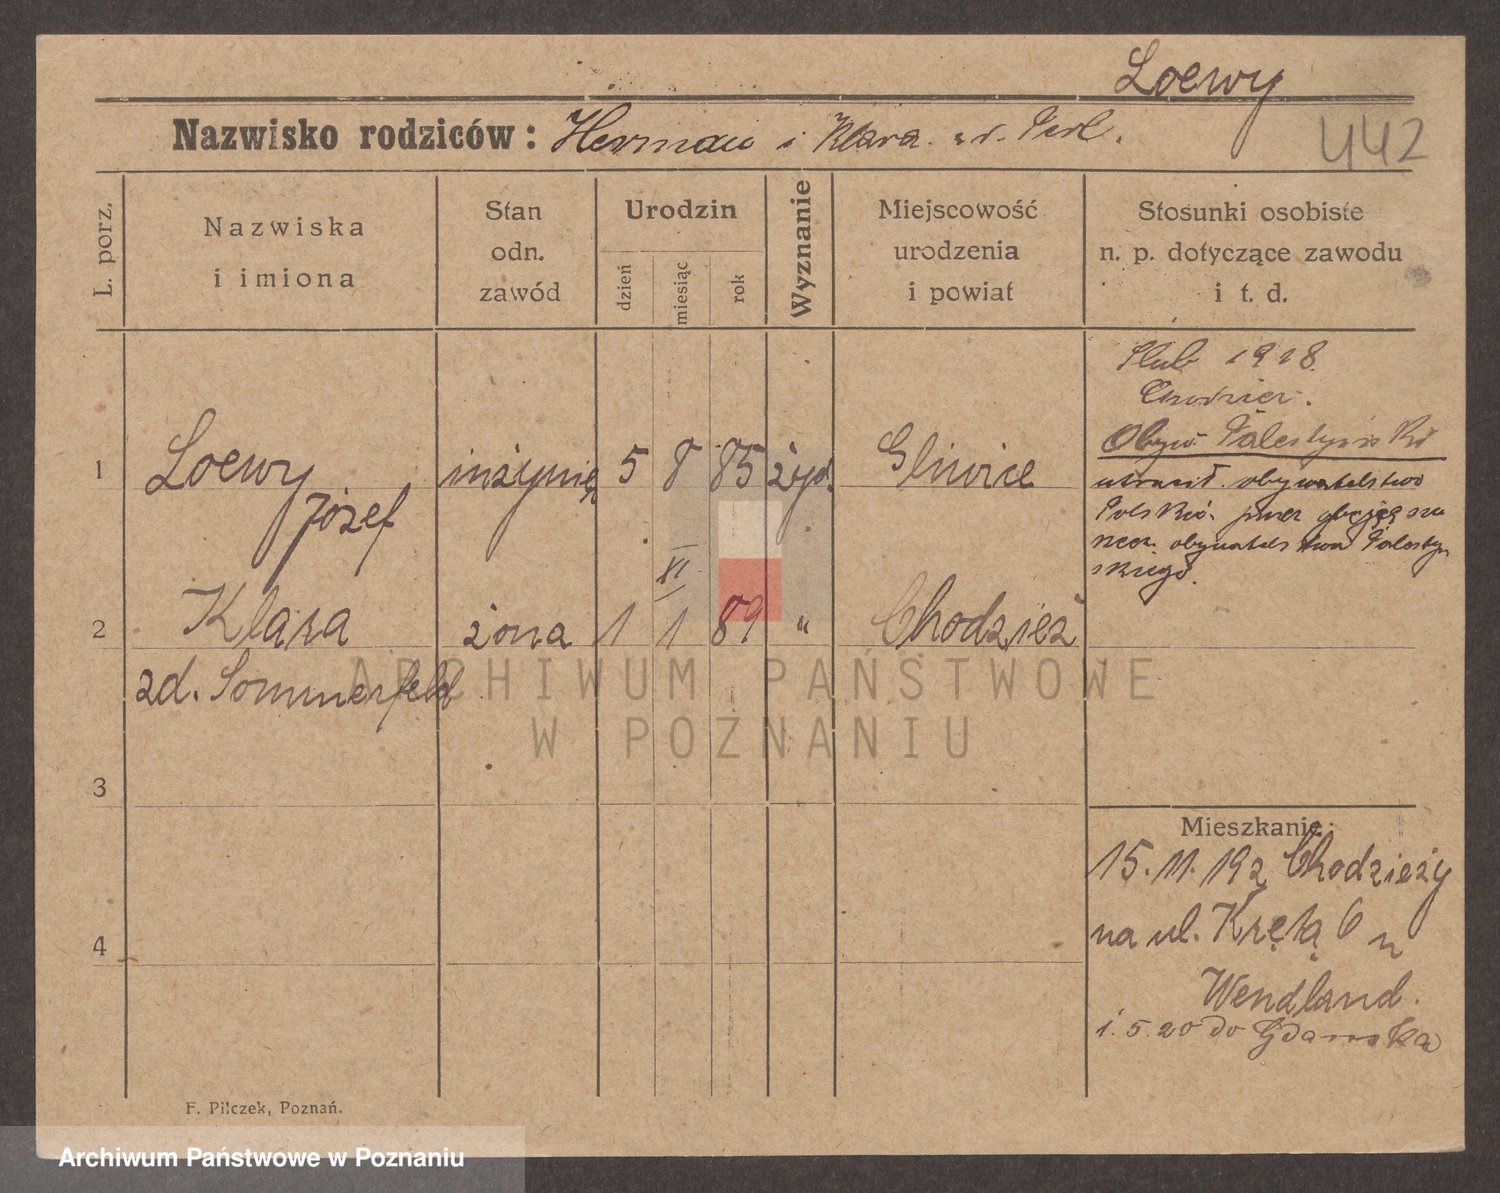 Loewy
Nazwisko rodziców: Herman i Klara
442
L. porz.
Nazwiska
i imiona
Stan
odn.
zawód
Urodzin
dzień
miesiąc
rok
Wyznanie
Miejscowość
urodzenia
i powiat
Stosunki osobiste
n. p. dotyczące zawodu
i t. d.
Chodzież.
Obyw. Palestyński
1 Loewy inżynier 5 8 85 żyd. Gliwice
Józef
utracił obywatelstwo
Polskie przez
obywatelstwa Palestyń
skiego.
XI
2 Klara żona 1 1 89 " Chodzież
zd. Sommerfeld
ARCHIWUM PAŃSTWOWE
W POZNANIU
3
Mieszkanie:
15. 11. 19 z Chodzieży
na ul. Krętą 6 u
4
Wendland.
1. 5. 20 do Gdańska
F. Pilczek, Poznań.
Archiwum Państwowe w Poznaniu